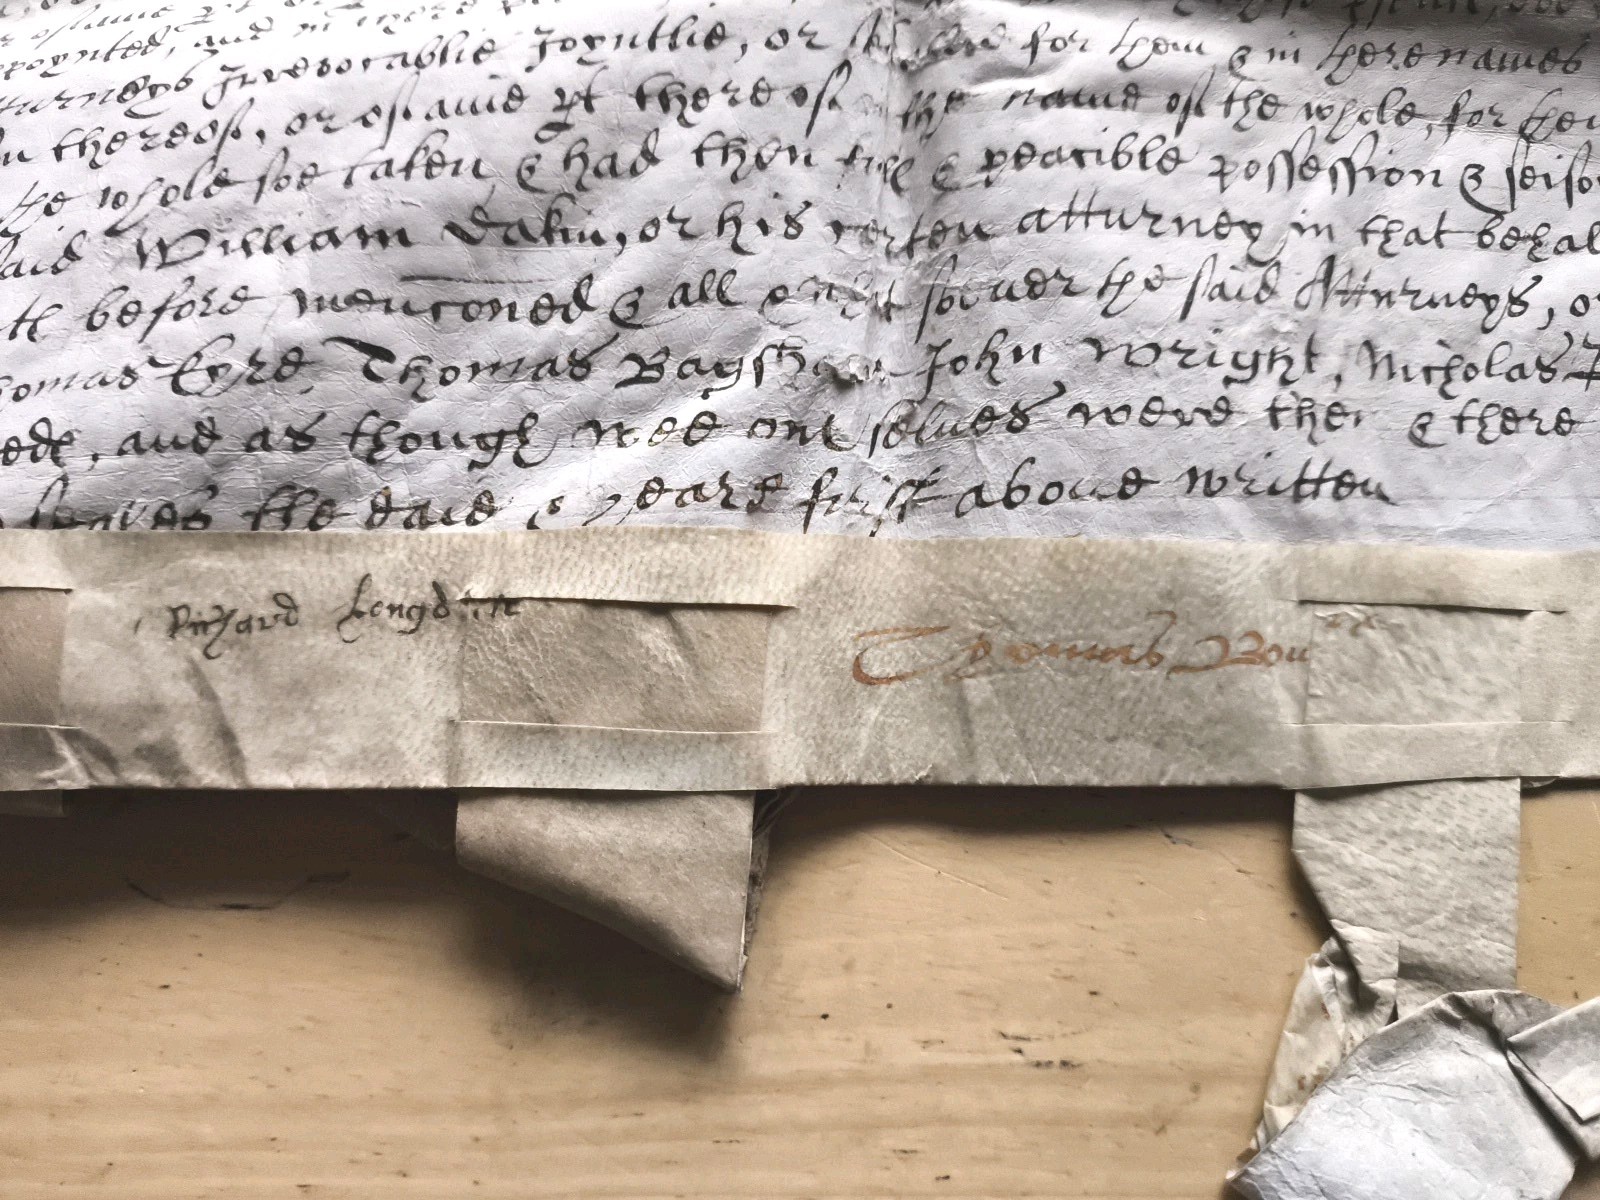 poynted, and in
Atturneys Irrevocablie Joyntlie, or for them & in there names
thereof, or of anie pt thereof the name of the whole, for
the whole soe taken, & had then full & peacible possession & seiso
said William Dakin, or his certen atturney in that behal
before mencioned & all & soever the said Atturneys, or
homas Eyre, Thomas Bagshaw John Wright, Nicholas
and as though wee our selves were then & there
the daie & yeare first above written
Richard Longd
Thomas Bou